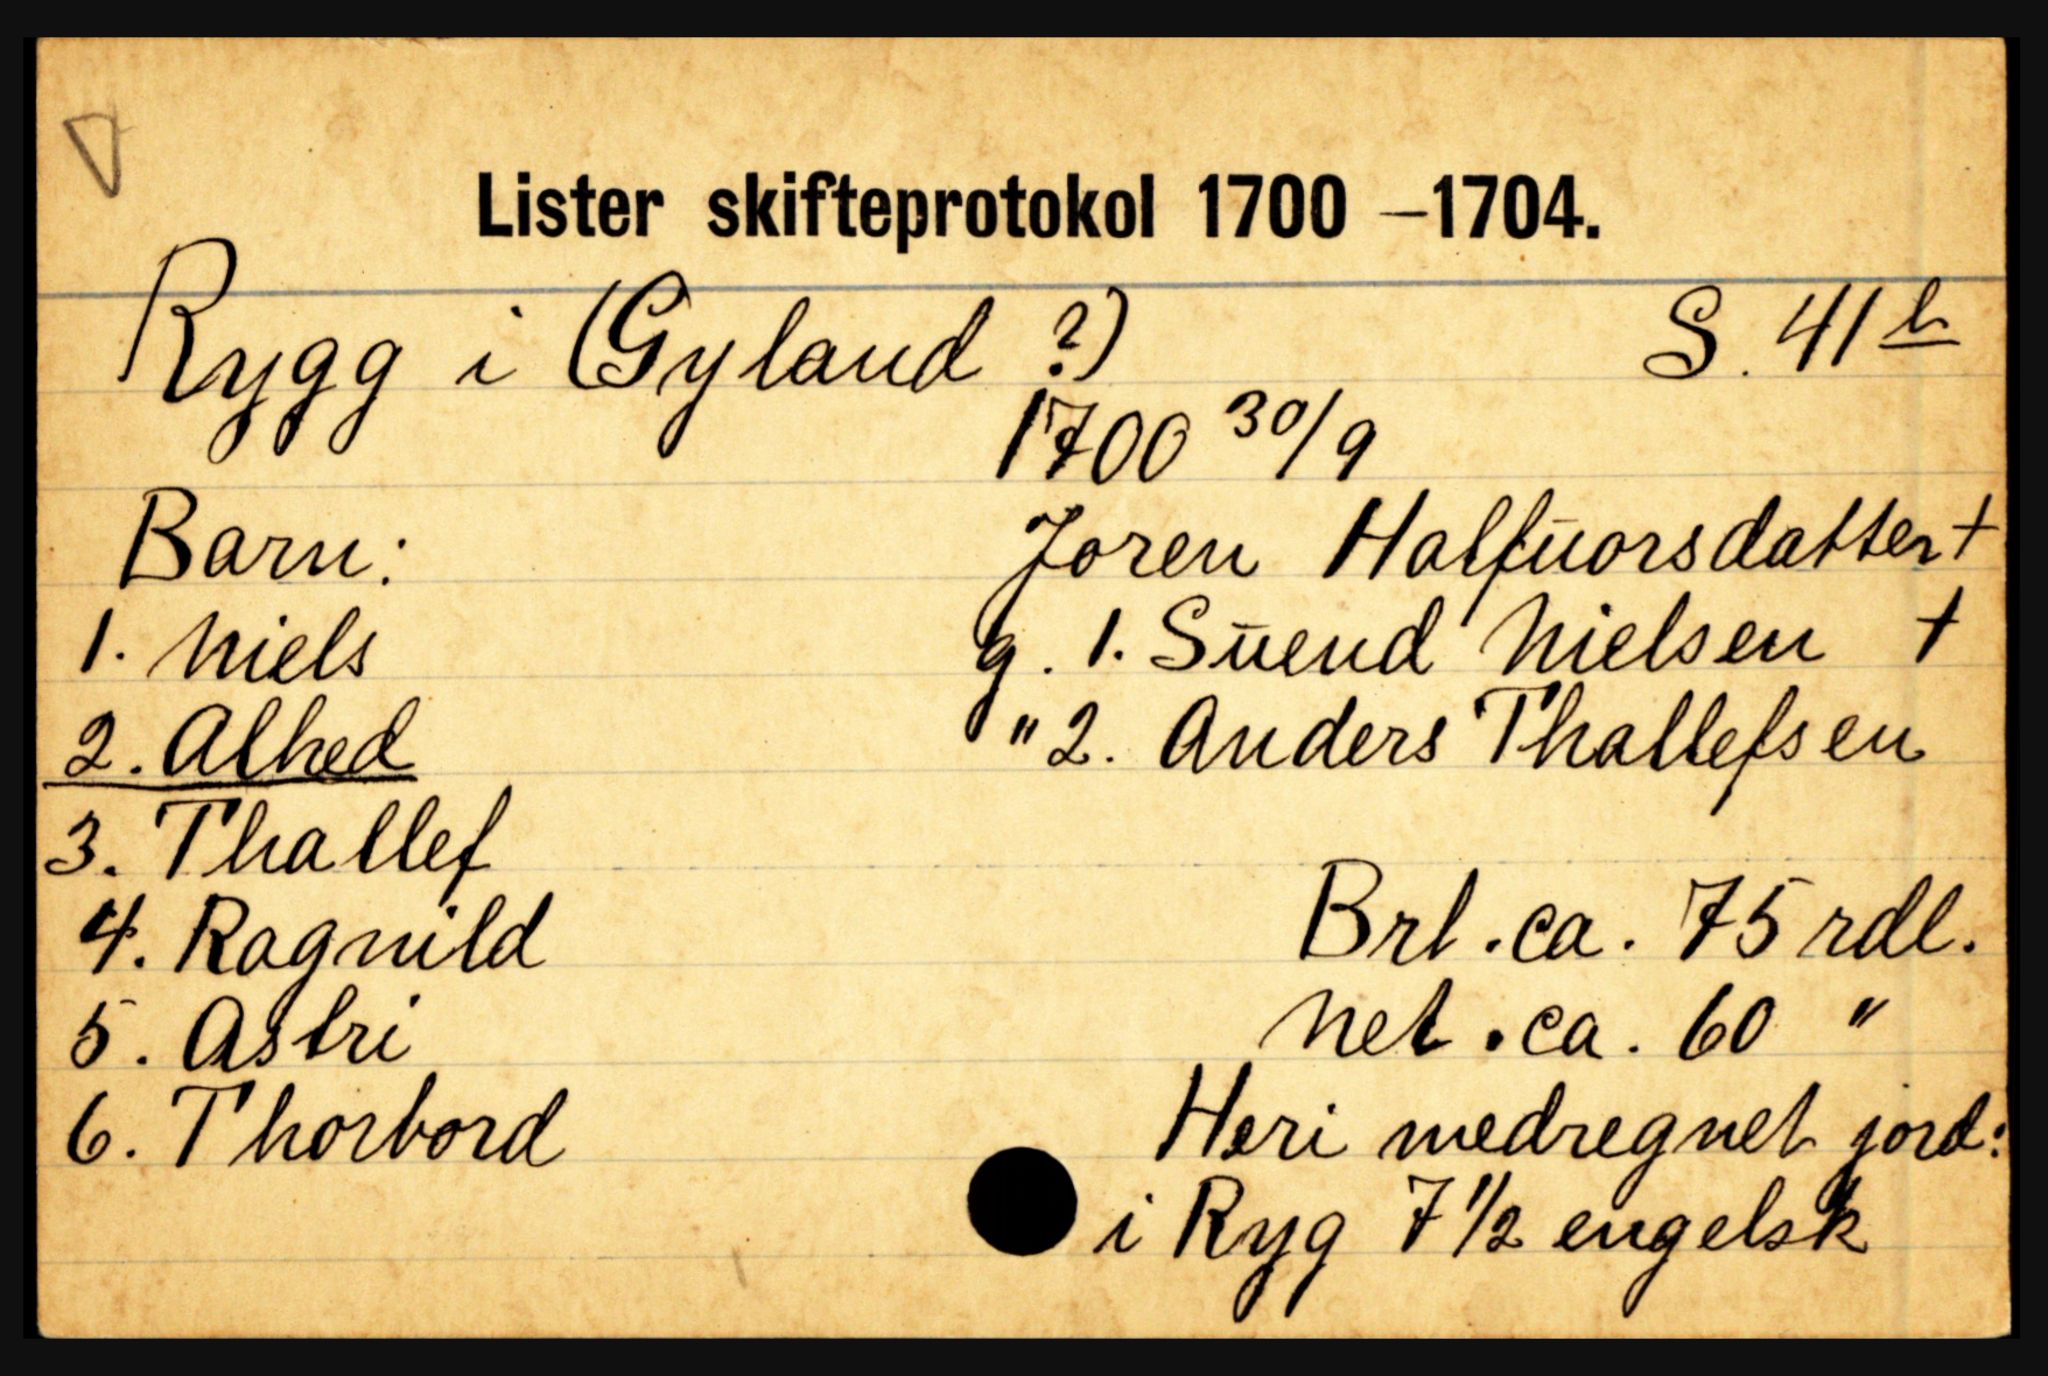 Lister skifteprotokol 1700 –1704.
Rygg i (Gyland ?) S. 41 b
1700 30/9
Barn:
1. Niels
2. Alhed
3. Thallef
4. Ragnild
5. Astri
6. Thorbord
Joren Halfŭorsdatter †
g. 1. Sŭend Nielsen †
" 2. Anders Thallefsen
Brt. ca. 75 rdl.
Net. ca. 60 "
Heri medregnet jord:
i Ryg 7 1/2 engelsk